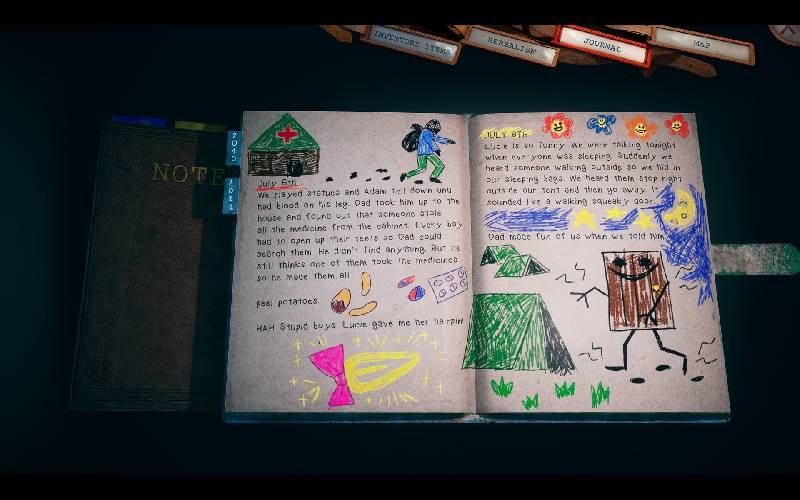 INVENTORY ITEMS
HERBALISM
JOURNAL
MAP
NOTE
2040
2021
July 6th
We played statues and Adam fell down and
had blood on his leg. Dad took him up to the
house and found out that someone stole
all the medicine from the cabinet. Every boy
had to open up their tents so Dad could
search them. He didn't find anything. But he
still thinks one of them took the medicines
so he made them all
peel potatoes.
HAH Stupid boys. Lucie gave me her hairpin!
JULY 8TH
Lucie is so funny. We were talking tonight
when everyone was sleeping. Suddenly we
heard someone walking outside so we hid in
our sleeping bags. We heard them stop right
outside our tent and then go away. It
sounded like a walking squeaky door.
Dad made fun of us when we told him.